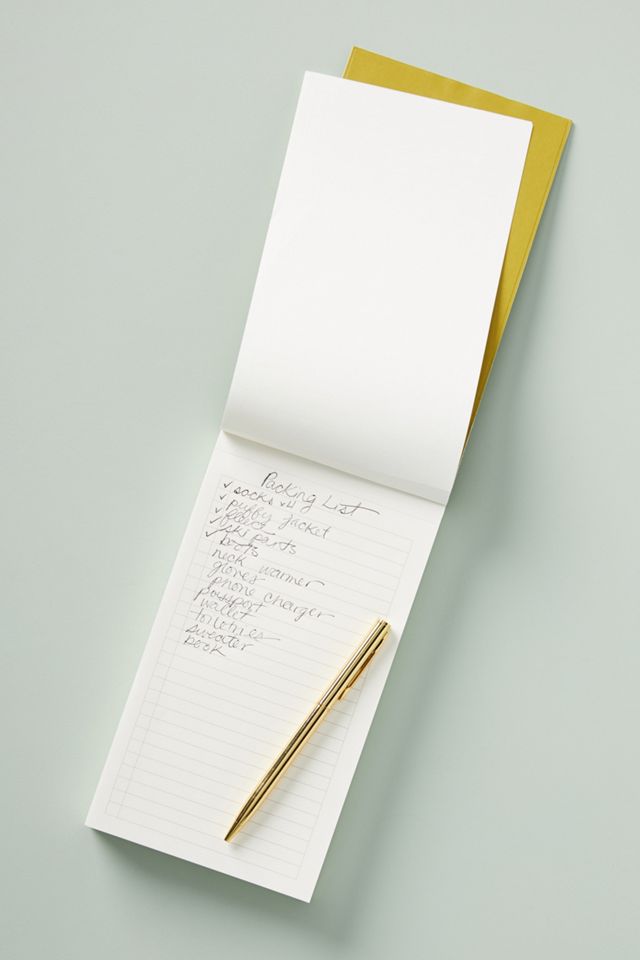 Packing List
✓ socks x4
✓ puffy jacket
✓ fleece
✓ ski pants
✓ boots
neck warmer
gloves
phone charger
passport
wallet
toiletries
sweater
book